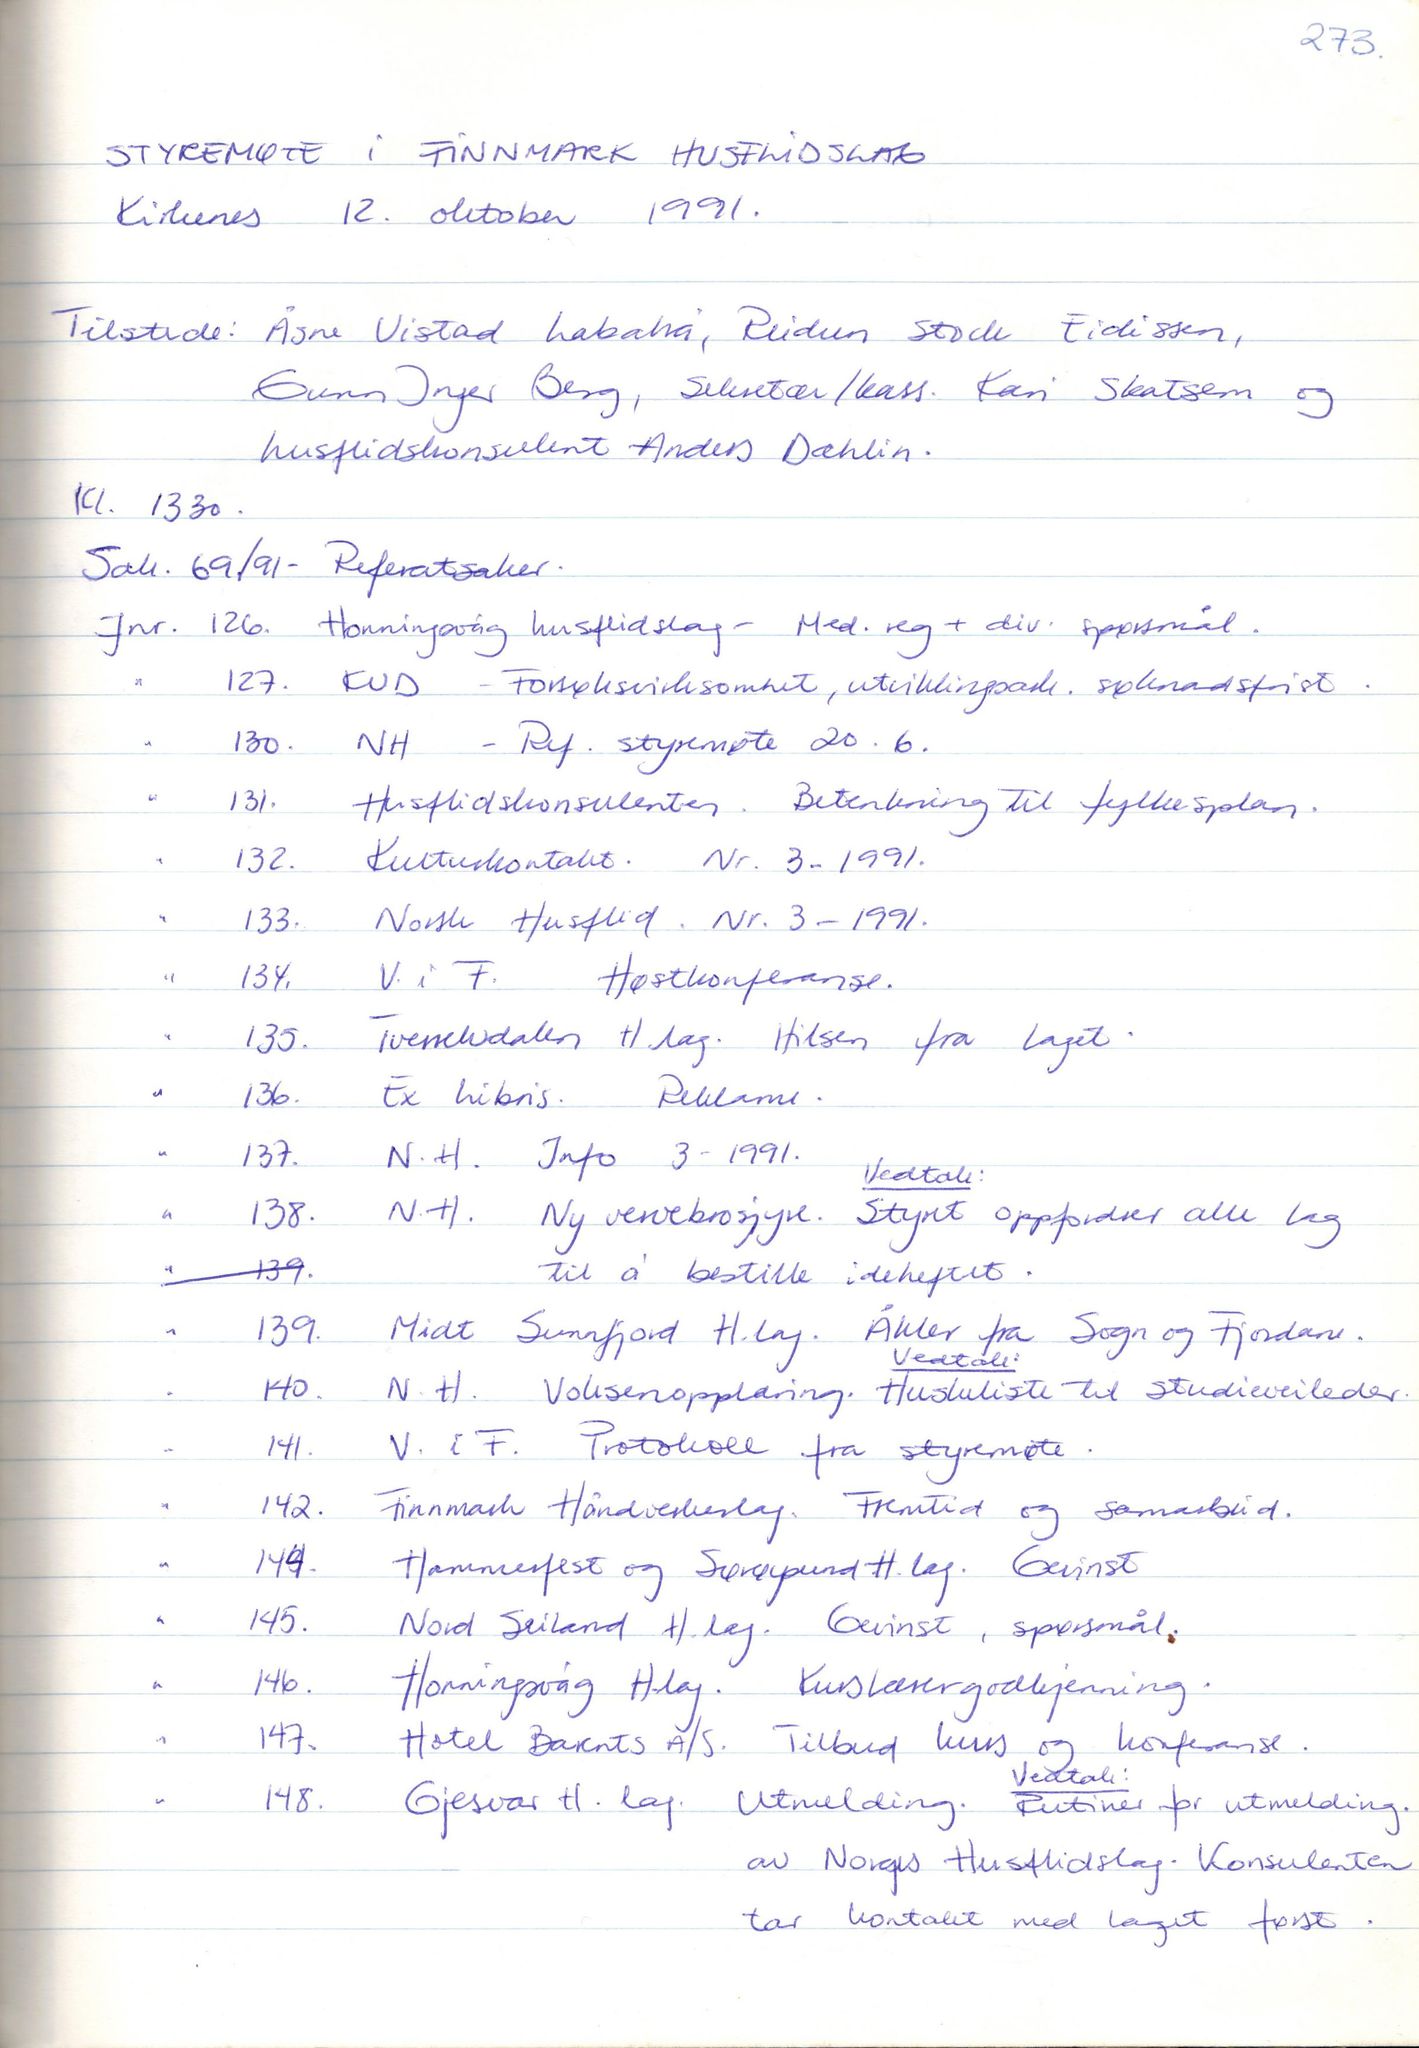 273.
STYREMØTE i FINNMARK HUSFLIDSLAG
Kirkenes 12. oktober 1991.
Tilstede: Åsne Vistad Labahå, Reidun Stock Eidissen,
Gunn Inger Berg, sekretær/kass. Kari Skatsem og
husflidskonsulent Anders Dæhlin.
Kl. 1330.
Sak. 69/91- Referatsaker.
Jnr. 126. Honningsvåg husflidslag - Med. reg + div. spørsmål.
" 127. KUD - Forsøksvirksomhet, utviklingsarb. søknadsfrist.
" 130. NH - Ref. styremøte 20.6.
" 131. Husflidskonsulenten. Betenkning til fylkesplan.
" 132. Kulturkontakt. Nr. 3-1991.
" 133. Norsk Husflid. Nr. 3-1991.
" 134. V. i F. Høstkonferanse.
" 135. Tverrelvdalen H.lag. Hilsen fra laget.
" 136. Ex Libris. Reklame.
" 137. N.H. Info 3-1991.
Vedtak:
" 138. N.H. Ny vervebrosjyre. Styret oppfordrer alle lag
" 139. til å bestille ideheftet.
" 139. Midt Sunnfjord H.lag. Åkler fra Sogn og Fjordane.
Vedtak:
" 140. N.H. Voksenopplæring. Huskeliste til studieveileder.
" 141. V. i F. Protokoll fra styremøte.
" 142. Finnmark Håndverkerlag. Fremtid og samarbeid.
" 144. Hammerfest og Sørøysund H.lag. Gevinst
" 145. Nord Seiland H.lag. Gevinst, spørsmål.
" 146. Honningsvåg H.lag. Kurslærergodkjenning.
" 147. Hotel Barents A/S. Tilbud kurs og konferanse.
Vedtak:
" 148. Gjesvær H.lag. Utmelding. Rutiner for utmelding.
av Norges Husflidslag. Konsulenten
tar kontakt med laget først.